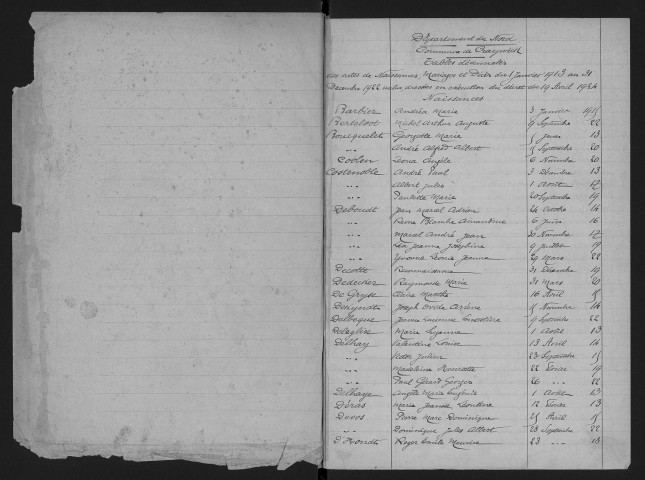 Département du Nord
Commune de Craywick
Tables décennales
des actes de Naissances, Mariages et Décès du 1 Janvier 1913 au 31
Décembre 1922 en exécution du décret du 19 Avril 1924
Naissances
Barbier Andréa Marie 3 Janvier 1915
Berteloot Michel Arthur Auguste 9 Septembre 22
Bouquelet Georgette Marie 5 13
" André Alfred Albert 5 Septembre 20
Coolen Léona Angèle 6 Novembre 20
Costenoble André Paul 3 Décembre 13
" Albert Jules 1 Août 17
" Paulette Marie 20 Septembre 19
Deboudt Jean Marcel Adrien 24 Octobre 14
" Blanche 6 Juin 16
" Marcel André Jean 20 Novembre 17
" Léa Jeanne Joséphine 9 Juillet 19
" Yvonne Léonie Jeanne 29 Mars 22
Decotte 31 Décembre 19
Dedeurker Raymonde Marie 31 Mars 20
De Gryse Claire Marthe 16 Avril 15
Joseph Ovide 5 Novembre 14
Delbecque Jeanne Lucienne 9 Septembre 22
Marie 1 Août 13
Delhay Valentine Louise 13 Avril 14
" Victor Julien 23 Septembre 15
" Madeleine Henriette 22 Février 19
" Paul Gérard Georges 26 " 22
Delhaye Angèle Marie Eugénie 1 Août 13
Déras Marie Jeanne Léontine 12 Février 13
Devos Pierre Marc Dominique 25 Avril 15
" Dominique Jules Albert 28 Septembre 22
D'Hondt Roger Emile Maurice 23 " 13